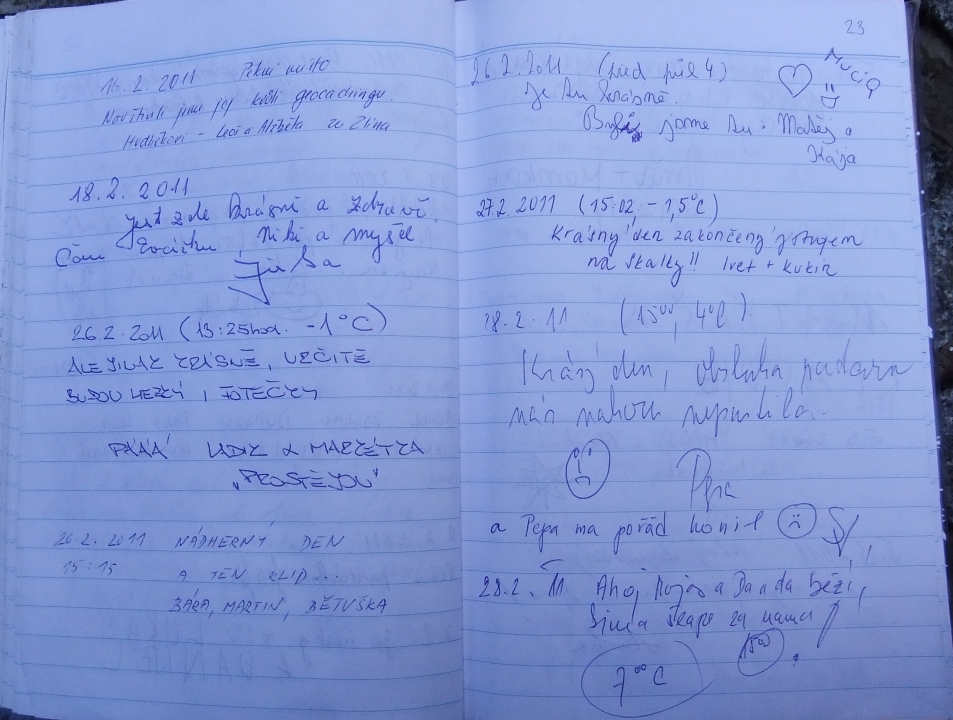 16.2.2011 Pěkné místo
Navštívili jsme jej kvůli geocachingu.
Hrdličkovi - Leoš a Alžběta ze Zlína
18.2.2011
Jest zde krásně a zdravě.
Niki a myslel
26.2.2011 (13:25hod. -1°C)
ALE JINAK KRÁSNĚ, URČITĚ
BUDOU HEZKÝ I FOTEČKY
PÁÁÁ LADIK A MARKÉTKA
"PROSTĚJOV"
26.2.2011 NÁDHERNÝ DEN
15:15 A TEN KLID...
BÁRA, MARTIN, BĚTUŠKA
23
26.2.2011 (před půl 4)
Je tu krásně.
jsme tu: Matěj a
Kája
27.2.2011 (15:02, -1,5°C)
Krásný den zakončený výstupem
na skalky!! Ivet + Kukin
28.2.11 (15⁰⁰, 4°C)
Krásný den, obsluha
nás nahoru nepustila.
Pepa
a Pepa ma pořád honil
28.2.11 Ahoj Kojas a Danda běží,
Sima šlape za nama!
15⁰⁰
7⁰⁰°C